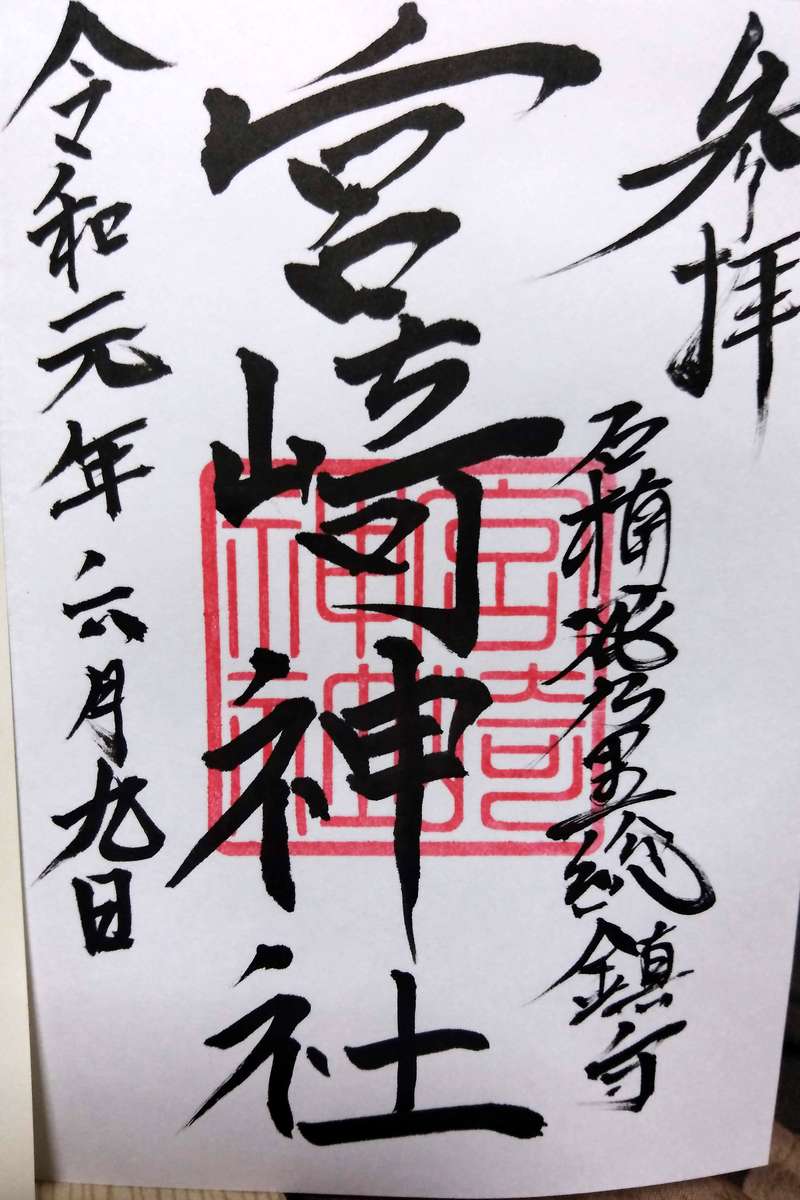 参拝
石楠花乃里総鎮守
宮崎神社
宮崎神社
令和元年六月九日